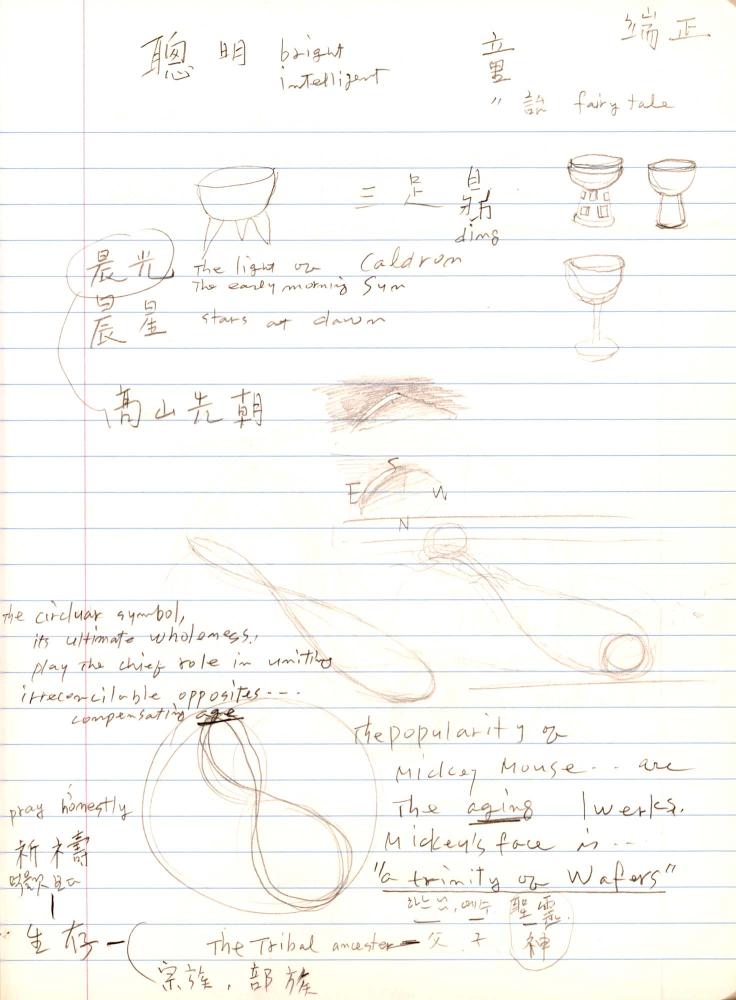 聰明 bright
intelligent
童
〃 話 fairy tale
端正
三足鼎
ding
晨光 The light of Caldron
The early morning Sun
晨星 stars at dawn
高山先朝
S
E W
N
the circluar symbol,
its ultimate wholeness,
play the chief role in uniting
irreconcilable opposites---
compensating age
The popularity of
Mickey Mouse... are
The aging
Mickey's face is...
"a trinity of Wafers"
pray honestly
祈禱
하느님, 예수 聖靈
生存 The Tribal ancester 父 子 神
宗族, 部族